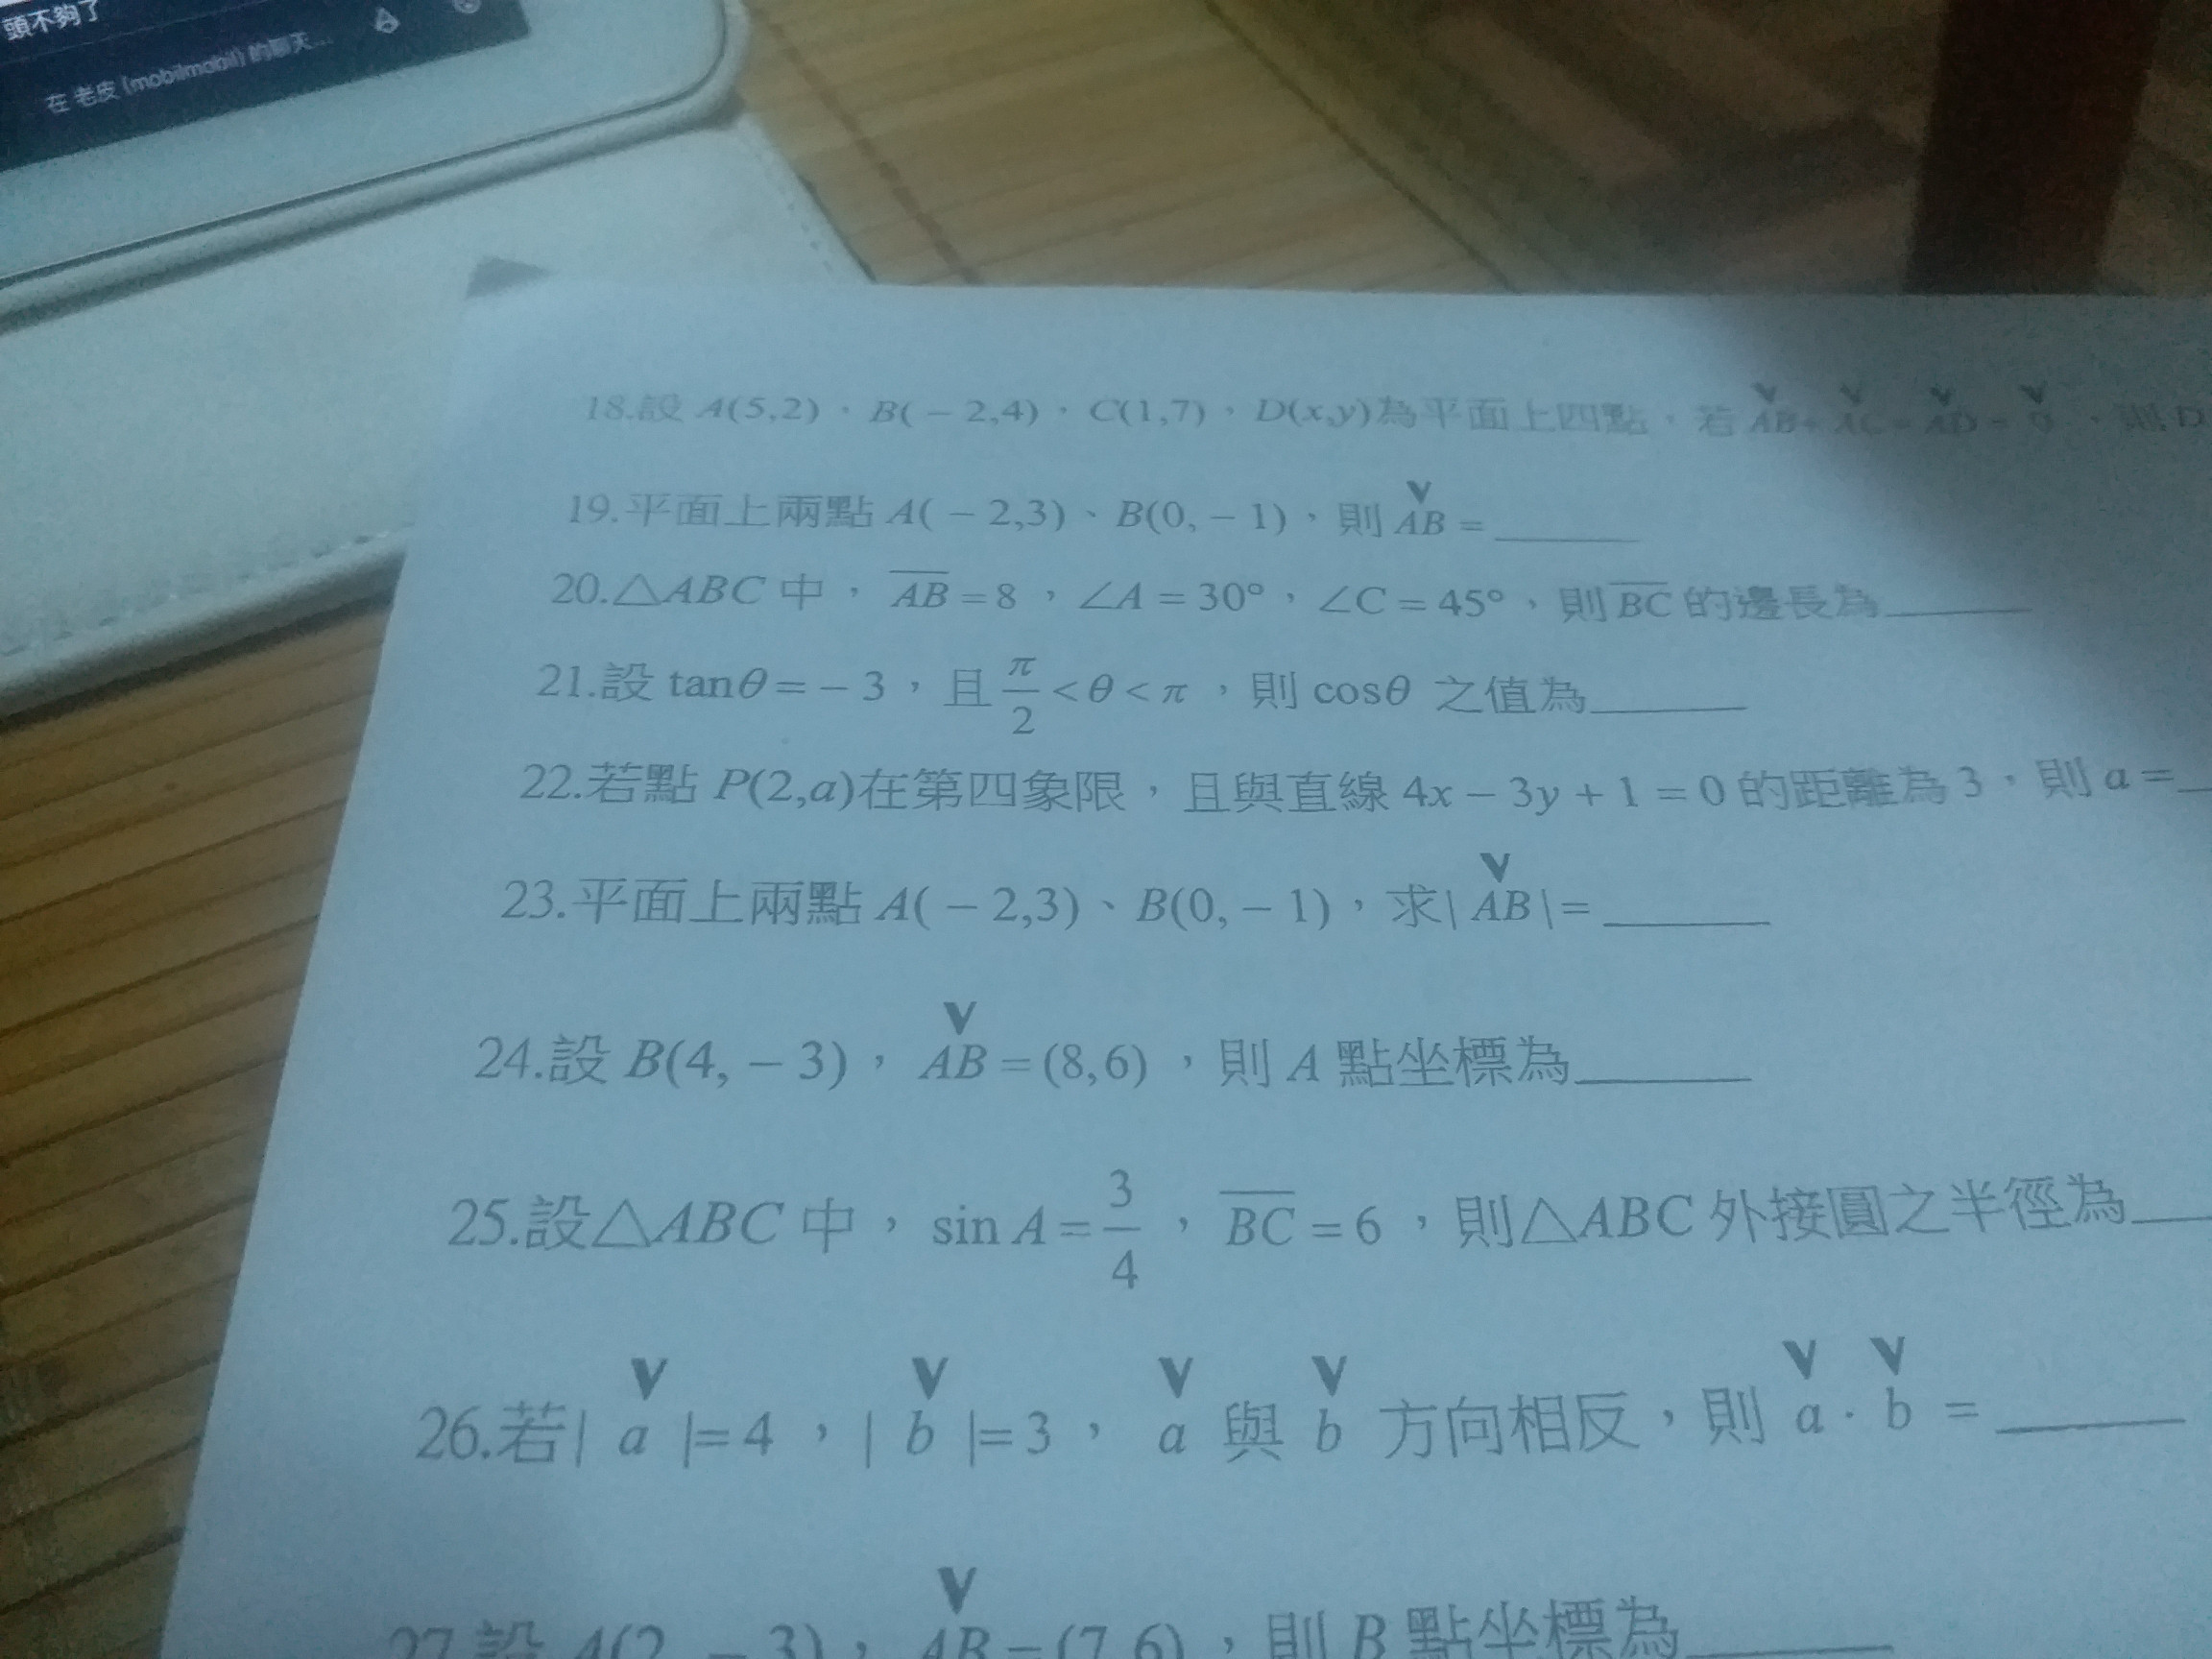 頭不夠了
在 老皮 (mobilmobil) 的聊天...
18.設 A(5,2)、B(－2,4)、C(1,7)、D(x,y)為平面上四點，若 AB+ AC
19.平面上兩點 A(－2,3)、B(0,－1)，則 AB = ______
20.△ABC 中， AB = 8 ，∠A = 30°，∠C = 45°，則 BC 的邊長為______
21.設 tanθ = －3 ，且 π/2 < θ < π ，則 cosθ 之值為______
22.若點 P(2,a)在第四象限，且與直線 4x－3y＋1＝0 的距離為 3，則 a =_
23.平面上兩點 A(－2,3)、B(0,－1)，求| AB |= ______
24.設 B(4,－3)， AB = (8,6) ，則 A 點坐標為______
25.設△ABC 中，sin A = 3/4 ， BC = 6 ，則△ABC 外接圓之半徑為__
26.若| a |= 4 ，| b |= 3 ， a 與 b 方向相反，則 a · b = ______
27.設 A(2,－3)， AB = (7,6) ，則 B 點坐標為______